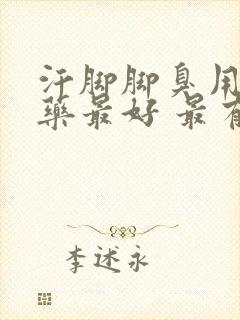 汗脚脚臭用
藥最好 最有
李述永